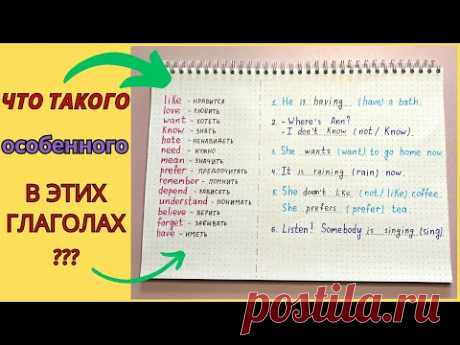 ЧТО ТАКОГО
особенного
В ЭТИХ
ГЛАГОЛАХ
???
like - нравится
love - любить
want - хотеть
know - знать
hate - ненавидеть
need - нужно
mean - значить
prefer - предпочитать
remember - помнить
depend - зависеть
understand - понимать
believe - верить
forget - забывать
have - иметь
1. He is having (have) a bath.
2. - Where's Ann?
- I don't know (not / know).
3. She wants (want) to go home now.
4. It is raining (rain) now.
5. She doesn't like (not/ like) coffee.
She prefers (prefer) tea.
6. Listen! Somebody is singing (sing)
postila.ru